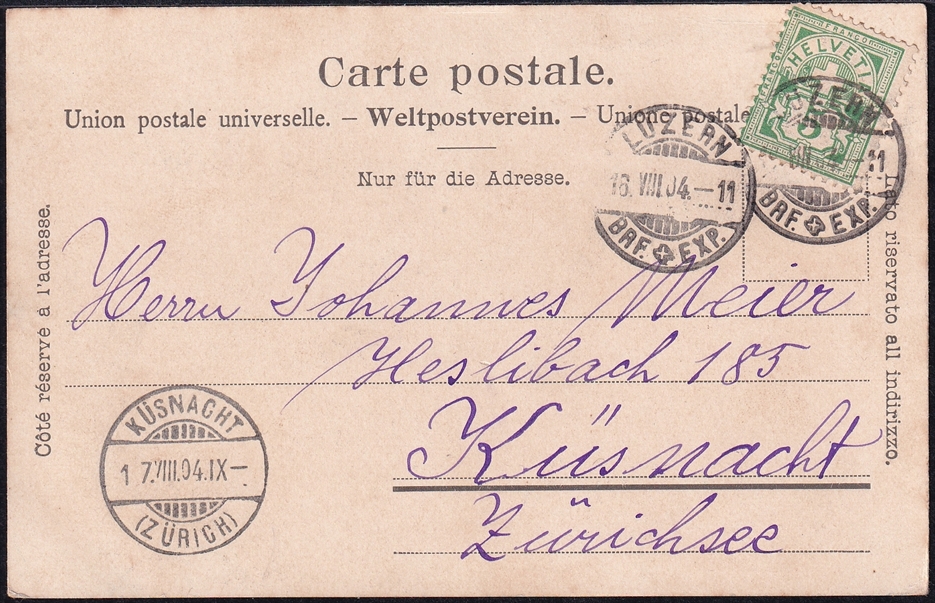 Carte postale.
Union postale universelle. – Weltpostverein. – Unione postale
Nur für die Adresse.
Côté réservé à l'adresse.
Lato riservato all indirizzo.
FRANCO
HELVETIA
FRANCO
5
LUZERN
16.VIII.04.–11
BRF. EXP.
LUZERN
VIII –11
BRF. EXP.
Herrn Johannes Meier
Heslibach 185
Küsnacht
Zürichsee
KÜSNACHT
17.VIII.04.IX–
(ZÜRICH)